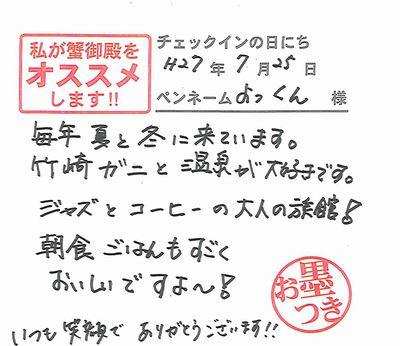 私が蟹御殿を
オススメ
します!!
チェックインの日にち
H27年7月25日
ペンネームよっくん 様
毎年 夏と冬に来ています。
竹崎ガニと温泉が大好きです。
ジャズとコーヒーの大人の旅館!
朝食ごはんもすごく
おいしいですよ〜!
いつも笑顔で ありがとうございます!!
お墨つき